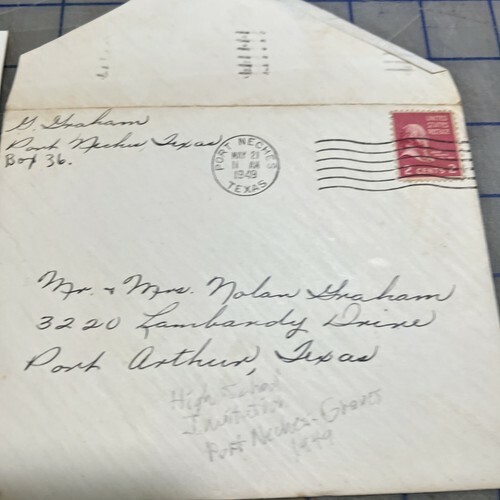 G. Graham
Port Neches Texas
Box 36.
PORT NECHES
MAY 21
11 AM
1949
TEXAS
2 CENTS 2
Mr. & Mrs. Nolan Graham
3220 Lombardy Drive
Port Arthur, Texas
High School
Invitation
Port Neches-Groves
1949